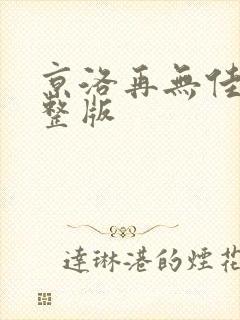 京洛再無佳
整版
達琳港的煙花